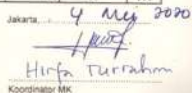 Jakarta, 4 Mei 2020
Hirfa Turrahmi
Koordinator MK